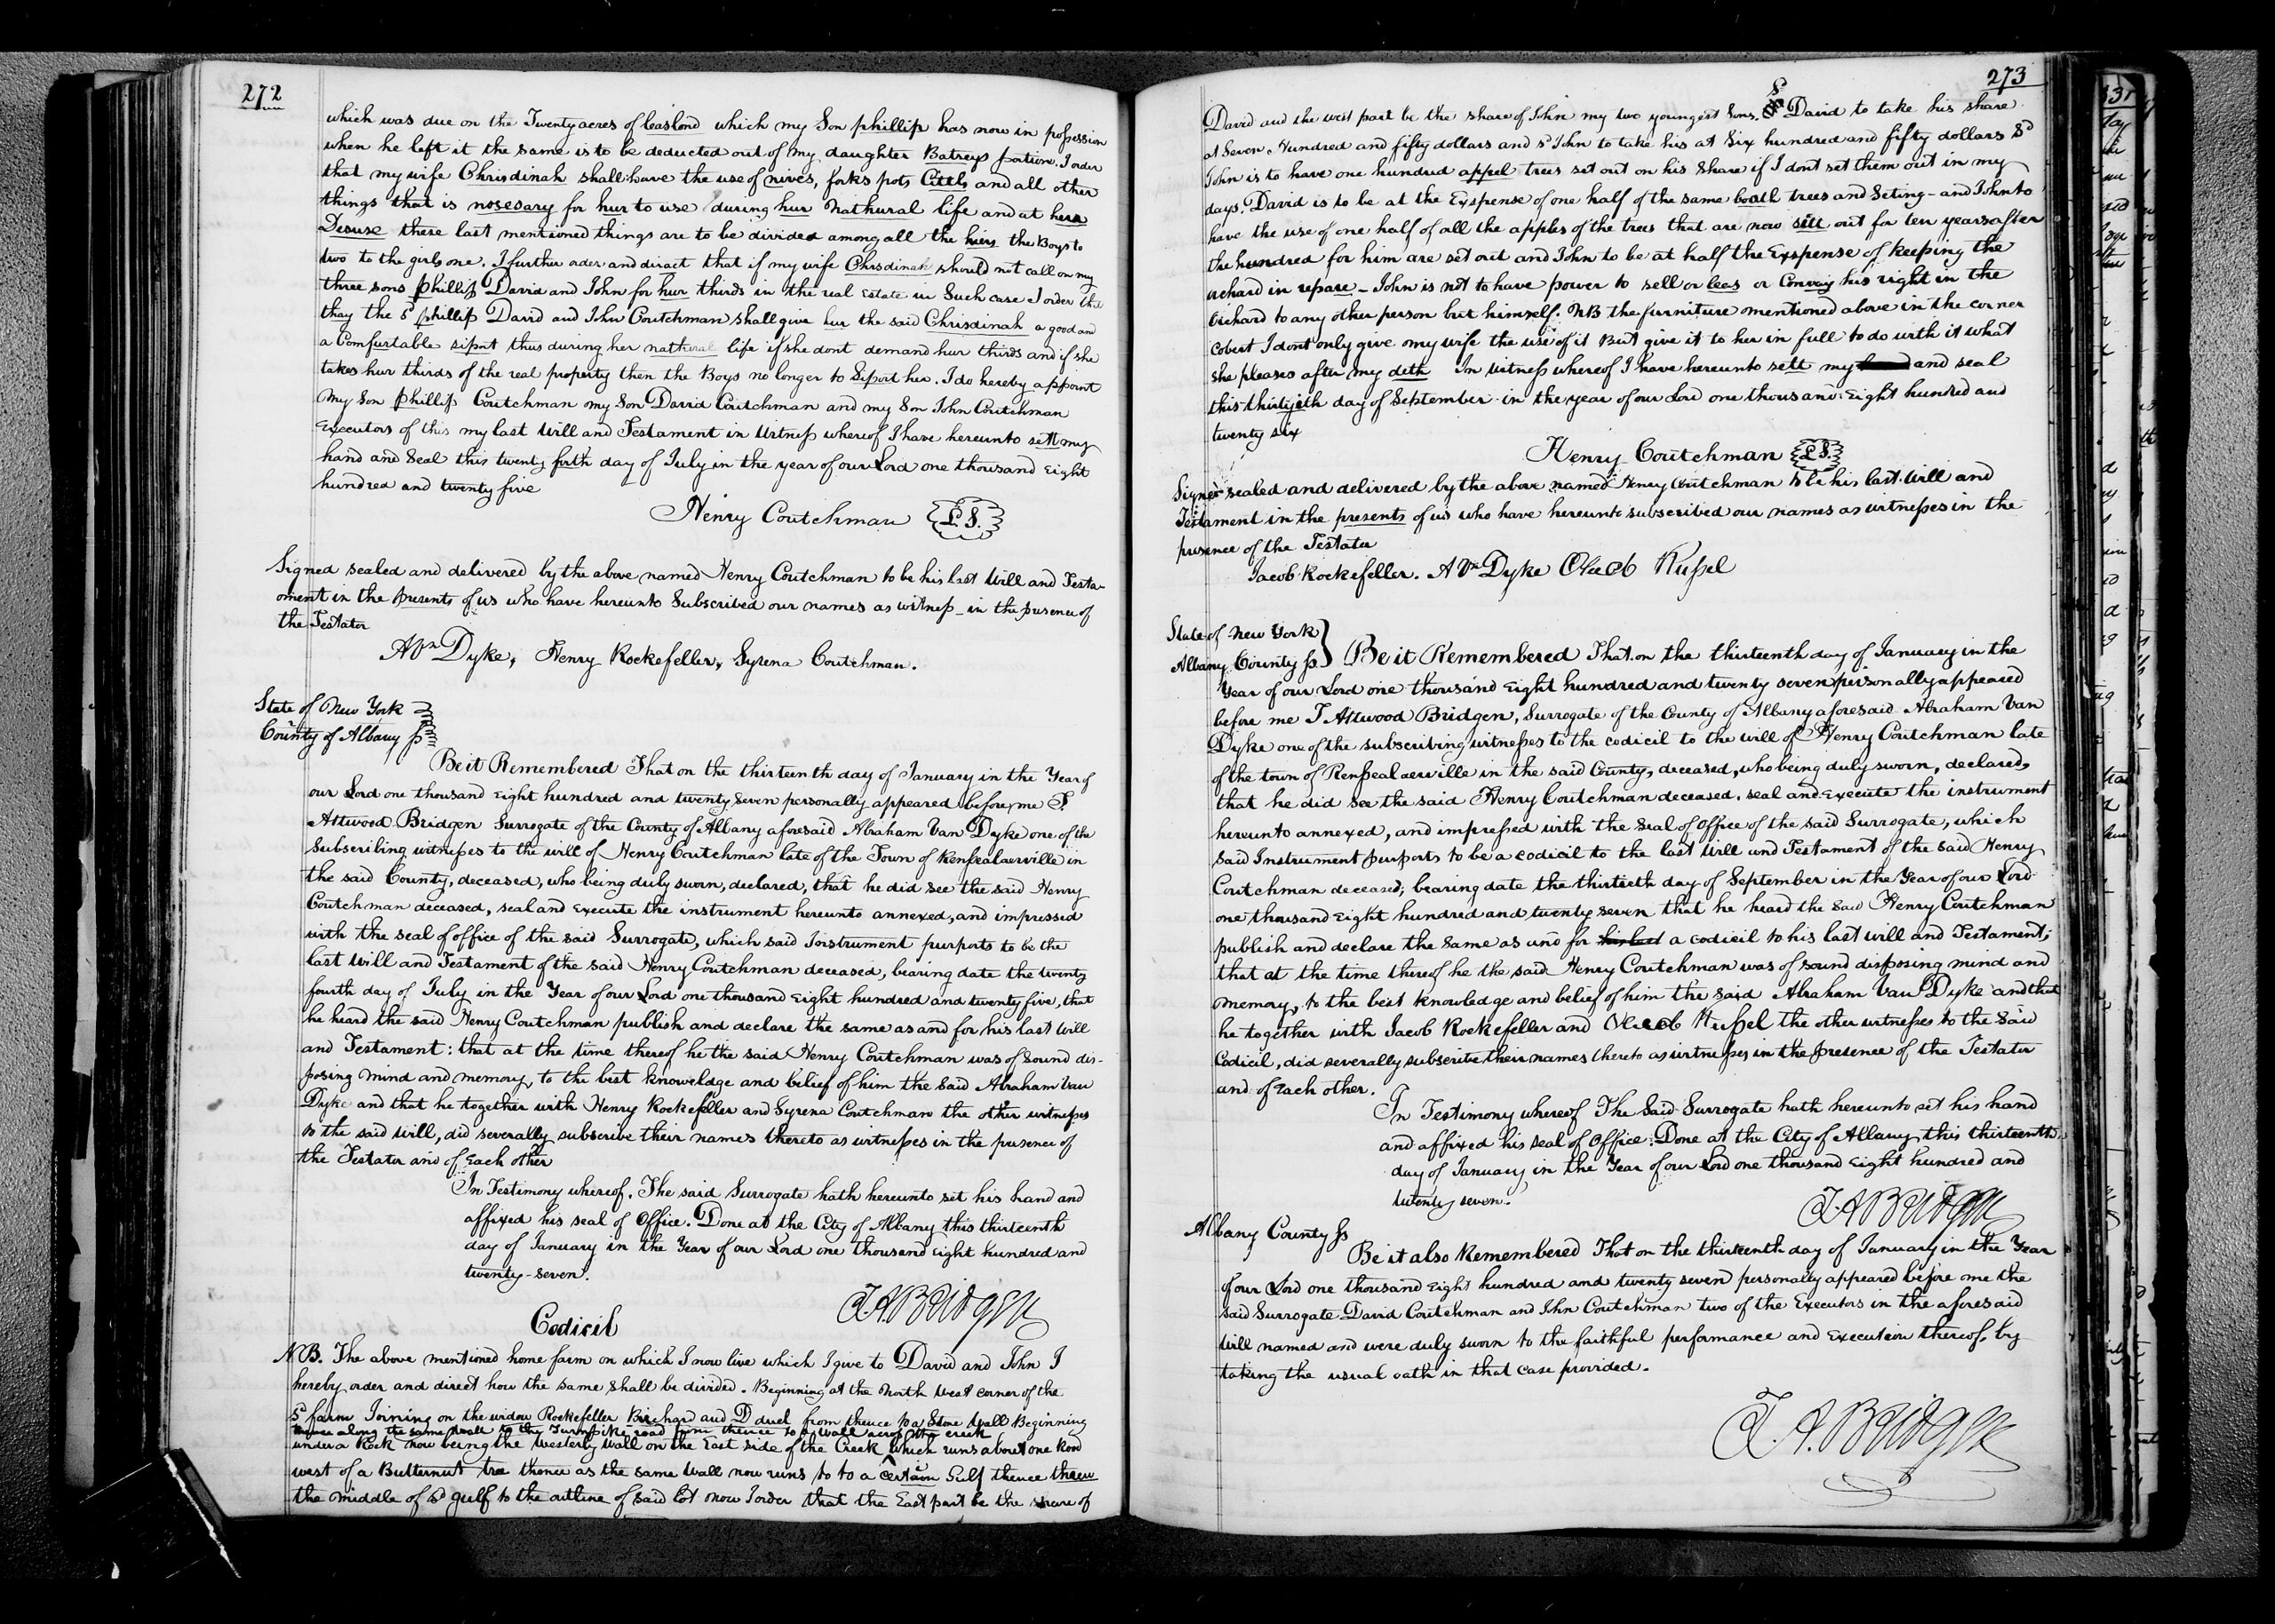 272
which was due on the Twenty acres of leaslond which my Son phillip has now in possession
when he left it the same is to be deducted out of my daughter Batreys portion. I order
that my wife Chrisdinah shall have the use of nives, forks pots Cittls and all other
things that is nosesary for hur to use during hur nathural life and at hera
Desuse these last mentioned things are to be divided among all the hiers the Boys to
two to the girls one. I further order and diract that if my wife Chrisdinah should not call on my
three sons phillip David and John for hur thirds in the real Estate in Such case I order the
thay the sd phillip David and John Coutchman shall give hur the said Chrisdinah a good and
a Comfurtable siport thus during her natheral life if she dont demand hur thirds and if she
takes hur thirds of the real property then the Boys no longer to Siport her. I do hereby appoint
my Son phillip Coutchman my Son David Coutchman and my Son John Coutchman
Executors of this my last Will and Testament in Witness whereof I have hereunto sett my
hand and Seal this twenty forth day of July in the year of our Lord one thousand Eight
hundred and twenty five
Henry Coutchman L.S.
Signed sealed and delivered by the above named Henry Coutchman to be his last Will and Testa-
ment in the presents of us who have hereunto Subscribed our names as witness in the presence of
the Testator
A Vn Dyke, Henry Rockefeller, Syrena Coutchman.
State of New York
County of Albany ss
Be it Remembered That on the thirteenth day of January in the Year of
our Lord one thousand Eight hundred and twenty Seven personally appeared before me T
Attwood Bridgen Surrogate of the County of Albany aforesaid Abraham Van Dyke one of the
Subscribing witnesses to the will of Henry Coutchman late of the Town of Rensealaerville in
the said County, deceased, who being duly sworn, declared, that he did see the said Henry
Coutchman deceased, seal and Execute the instrument hereunto annexed, and impressed
with the seal of office of the said Surrogate, which said Instrument purports to be the
last Will and Testament of the said Henry Coutchman deceased, bearing date the twenty
fourth day of July in the Year of our Lord one thousand Eight hundred and twenty five, that
he heard the said Henry Coutchman publish and declare the same as and for his last Will
and Testament: that at the time thereof he the said Henry Coutchman was of Sound dis-
posing mind and memory, to the best knoweldge and belief of him the said Abraham Van
Dyke and that he together with Henry Rockefeller and Syrena Coutchman the other witnesses
to the said Will, did severally subscribe their names thereto as witnesses in the presence of
the Testator and of Each other
In Testimony whereof. The said Surrogate hath hereunto set his hand and
affixed his seal of Office. Done at the City of Albany this thirteenth
day of January in the Year of our Lord one thousand Eight hundred and
twenty-seven.
T. A Bridgen
Codicil
N B. The above mentioned home farm on which I now live which I give to David and John I
hereby order and direct how the same shall be divided. Beginning at the North West corner of the
sd farm Joining on the widow Rockefeller Birchard and D duel from thence to a Stone Wall Beginning
thence along the same Wall to the Turnpike road from thence to a wall across the creek
under a Rock now being the Westerly Wall on the East side of the Creek which runs about one Rod
west of a Butternut tree thence as the same Wall now runs to to a certain Gulf thence threw
the middle of sd gulf to the outline of said lot now I order that the East part be the share of
273
David and the west part be the share of John my two youngest Sons. Sd David to take his share
at Seven Hundred and fifty dollars and sd John to take his at Six hundred and fifty dollars Sd
John is to have one hundred appel trees set out on his Share if I dont set them out in my
days. David is to be at the Expense of one half of the same boath trees and Seting - and John to
have the use of one half of all the apples of the trees that are now sett out for ten years after
the hundred for him are set out and John to be at half the Expense of keeping the
orchard in repare - John is not to have power to sell or leas or Convay his right in the
Orchard to any other person but himself. NB the furniture mentioned above in the corner
cobert I dont only give my wife the use of it But give it to her in full to do with it what
she pleases after my deth In witness whereof I have hereunto sett my hand and seal
this thirtyith day of September in the year of our Lord one thousand Eight hundred and
twenty six
Henry Coutchman L.S.
Signed sealed and delivered by the above named Henry Coutchman to be his last Will and
Testament in the presents of us who have hereunto subscribed our names as witnesses in the
presence of the Testator
Jacob Rockefeller. A Vn Dyke Russel
State of New York
Albany County ss Be it Remembered That on the thirteenth day of January in the
Year of our Lord one thousand Eight hundred and twenty seven personally appeared
before me T Attwood Bridgen, Surrogate of the County of Albany aforesaid Abraham Van
Dyke one of the subscribing witnesses to the codicil to the will of Henry Coutchman late
of the town of Rensealaerville in the said County, deceased, who being duly sworn, declared,
that he did see the said Henry Coutchman deceased, seal and Execute the instrument
hereunto annexed, and impressed with the seal of Office of the said Surrogate, which
said Instrument purports to be a codicil to the last Will and Testament of the said Henry
Coutchman deceased; bearing date the thirtieth day of September in the Year of our Lord
one thousand Eight hundred and twenty seven that he heard the said Henry Coutchman
publish and declare the same as and for his last a codicil to his last will and Testament;
that at the time thereof he the said Henry Coutchman was of sound disposing mind and
memory, to the best knowledge and belief of him the said Abraham Van Dyke and that
he together with Jacob Rockefeller and Russel the other witnesses to the said
Codicil, did severally subscribe their names thereto as witnesses in the presence of the Testator
and of Each other.
In Testimony whereof The Said Surrogate hath hereunto set his hand
and affixed his seal of Office: Done at the City of Albany this thirteenth
day of January in the Year of our Lord one thousand Eight hundred and
twenty seven.
T. A Bridgen
Albany County ss
Be it also Remembered That on the thirteenth day of January in the Year
of our Lord one thousand Eight hundred and twenty seven personally appeared before me the
said Surrogate David Coutchman and John Coutchman two of the Executors in the aforesaid
Will named and were duly sworn to the faithful performance and Execution thereof, by
taking the usual oath in that case provided.
T. A. Bridgen